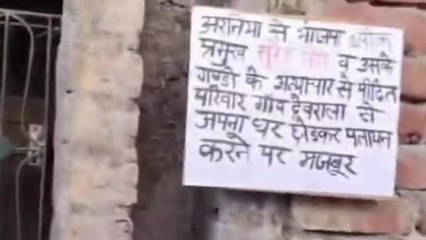 अरनिया से भाजपा ब्लॉक
प्रमुख सुरेश सिंह व उसके
गुण्डो के अत्याचार से पीड़ित
परिवार गांव देवराला से
अपना घर छोड़कर पलायन
करने पर मजबूर